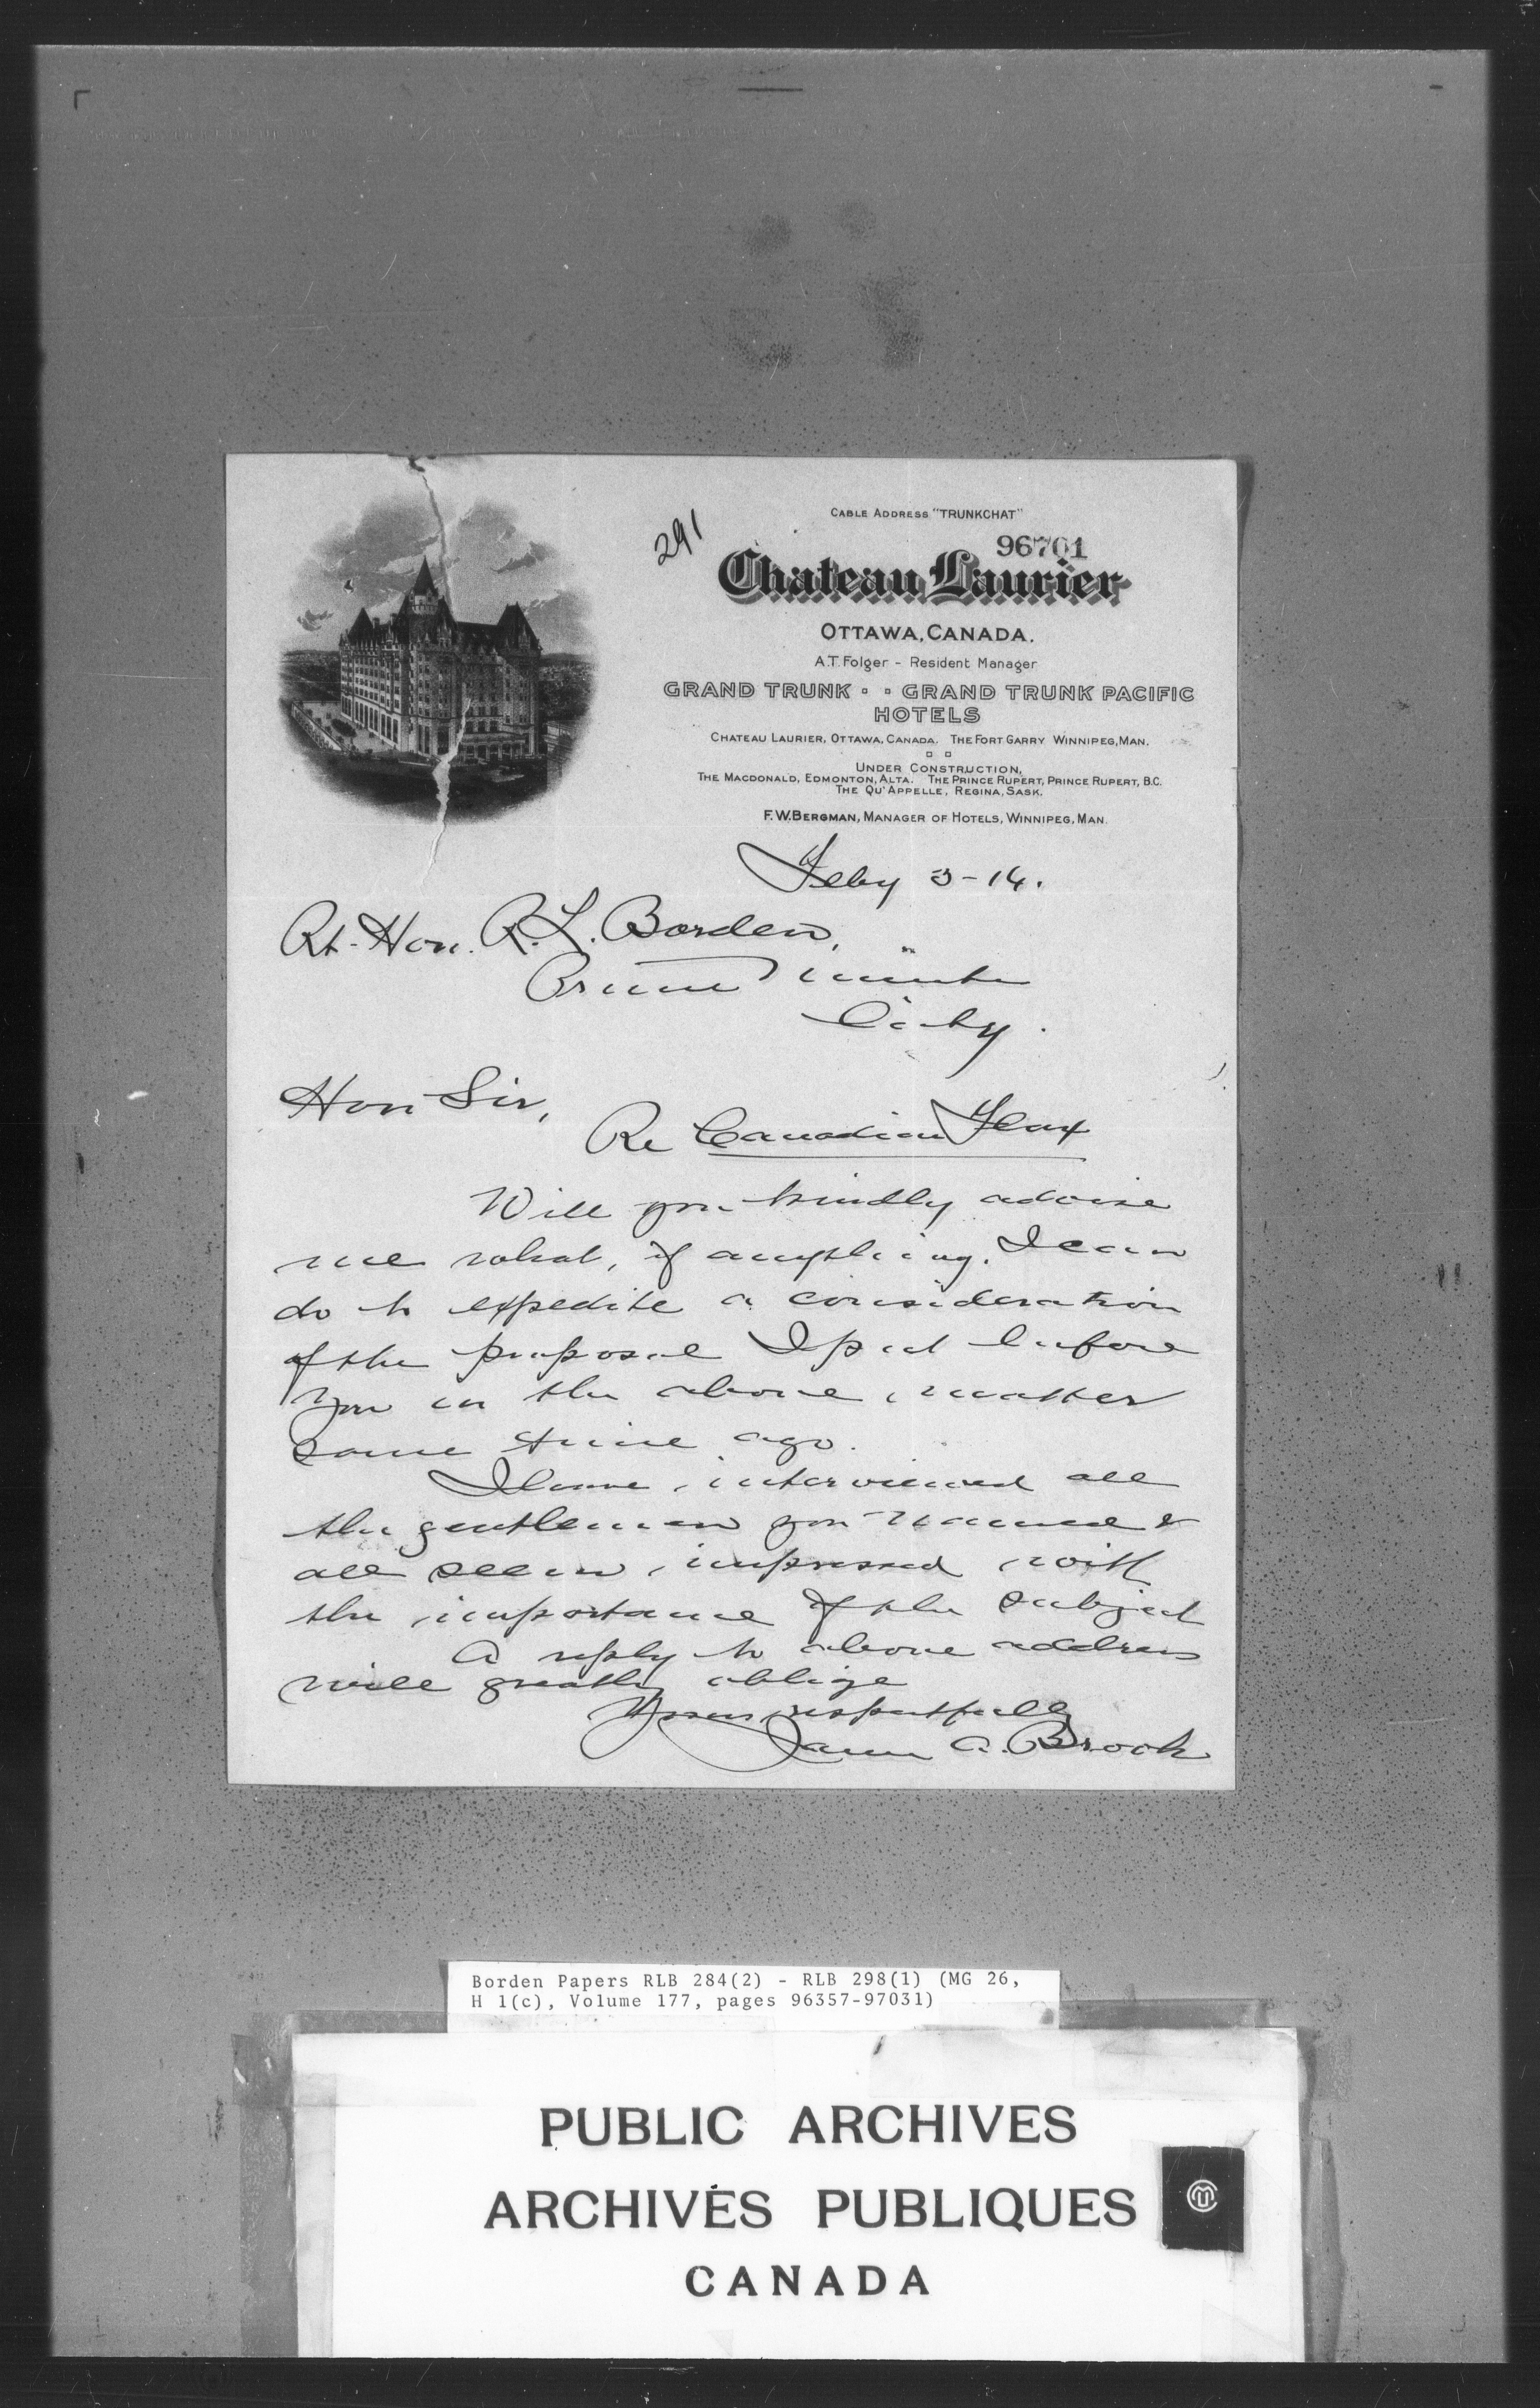 CABLE ADDRESS "TRUNKCHAT"
291
96701
Chateau Laurier
OTTAWA, CANADA.
A.T. Folger - Resident Manager
GRAND TRUNK · · GRAND TRUNK PACIFIC
HOTELS
CHATEAU LAURIER, OTTAWA, CANADA. THE FORT GARRY WINNIPEG, MAN.
UNDER CONSTRUCTION,
THE MACDONALD, EDMONTON, ALTA. THE PRINCE RUPERT, PRINCE RUPERT, B.C.
THE QU'APPELLE, REGINA, SASK.
F.W. BERGMAN, MANAGER OF HOTELS, WINNIPEG, MAN.
Feby 3-14.
Rt. Hon. R. L. Borden,
Prime Minister
City.
Hon Sir,
Re Canadian Flax
Will you kindly advise
me what, if anything, I can
do to expedite a consideration
of the proposal I put before
you in the above matter
some time ago.
I have interviewed all
the gentlemen you named &
all seem impressed with
the importance of the subject
A reply to above address
will greatly oblige
Yours respectfully
James A. Brook
Borden Papers RLB 284(2) - RLB 298(1) (MG 26,
H 1(c), Volume 177, pages 96357-97031)
PUBLIC ARCHIVES
ARCHIVES PUBLIQUES
CANADA